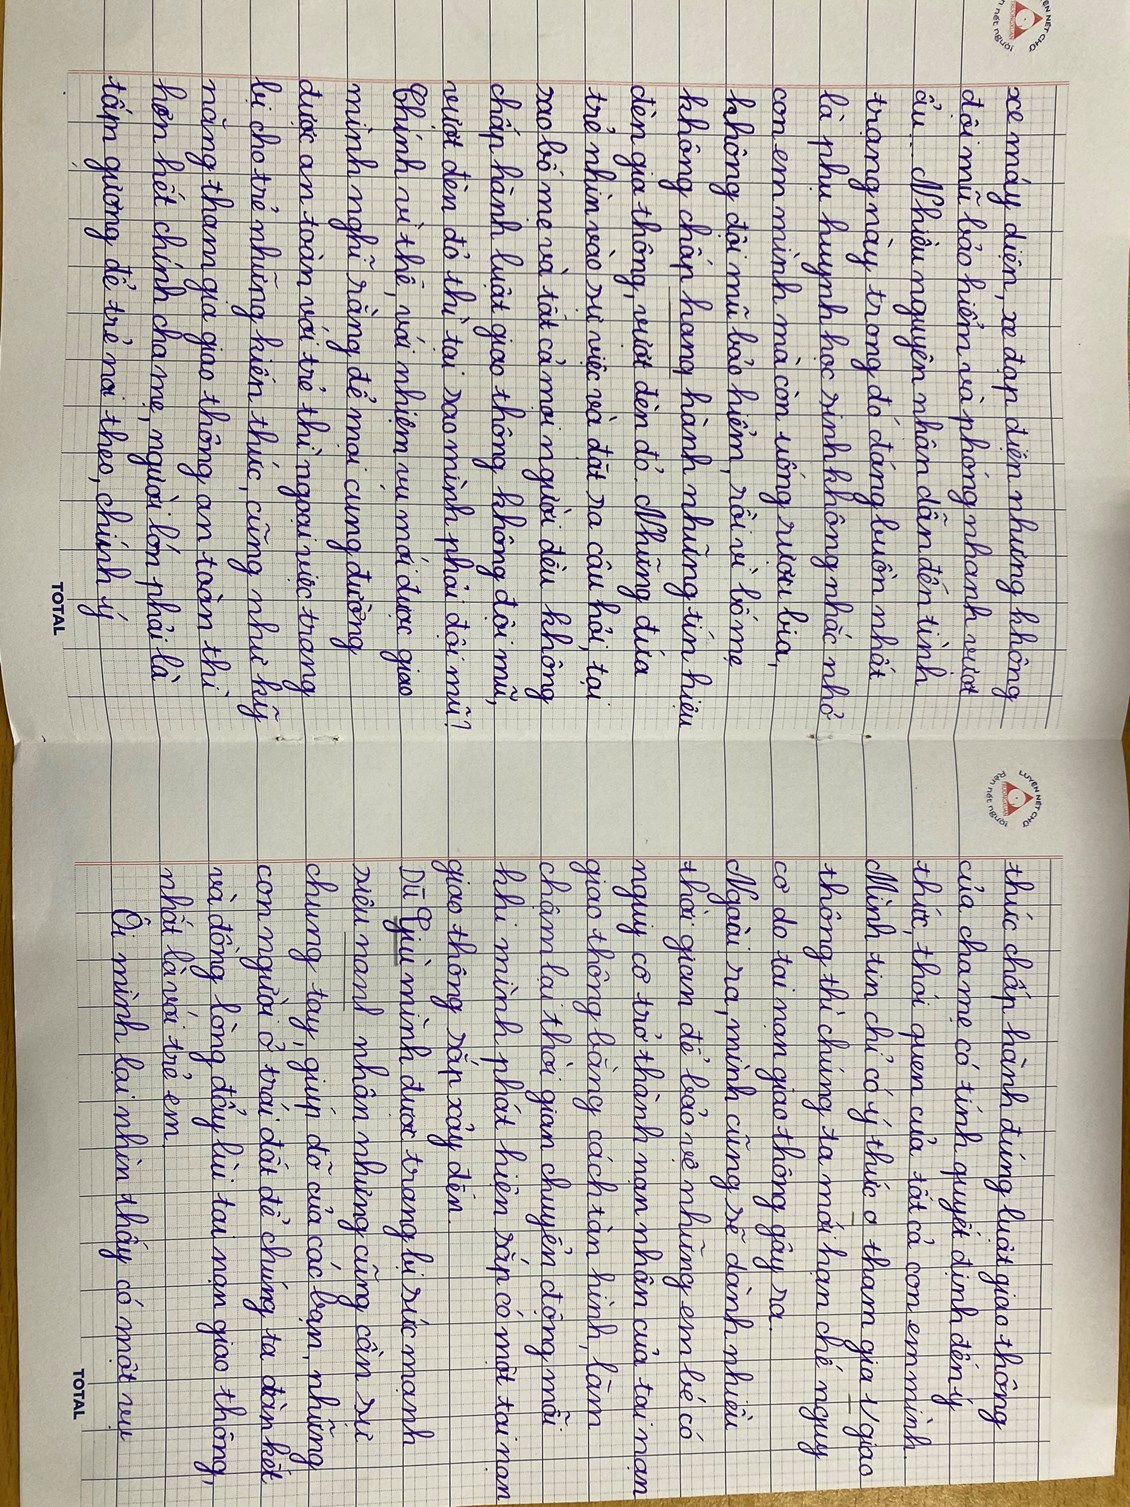 xe máy điện, xe đạp điện nhưng không
đội mũ bảo hiểm và phóng nhanh vượt
ẩu... Nhiều nguyên nhân dẫn đến tình
trạng này trong đó đáng buồn nhất
là phụ huynh học sinh không nhắc nhở
con em mình mà còn uống rượu bia,
không đội mũ bảo hiểm, rồi vì bố mẹ
không chấp hang hành những tín hiệu
đèn gia thông, vượt đèn đỏ. Những đứa
trẻ nhìn vào sự việc và đặt ra câu hỏi, tại
sao bố mẹ và tất cả mọi người đều không
chấp hành luật giao thông không đội mũ,
vượt đèn đỏ thì tại sao mình phải đội mũ?
Chính vì thế, với nhiệm vụ mới được giao
mình nghĩ rằng để mọi cung đường
được an toàn với trẻ thì ngoại việc trang
bị cho trẻ những kiến thức, cũng như kỹ
năng tham gia giao thông an toàn thì
hơn hết chính cha mẹ, người lớn phải là
tấm gương để trẻ noi theo, chính ý
TOTAL
LUYỆN NÉT CHỮ
Rèn nết người
thức chấp hành đúng luật giao thông
của cha mẹ có tính quyết định đến ý
thức, thói quen của tất cả con em mình.
Mình tin chỉ có ý thức ơ tham gia V giao
thông thì chúng ta mới hạn chế nguy
cơ do tai nạn giao thông gây ra.
Ngoài ra, mình cũng sẽ dành nhiều
thời gian để bảo vệ những em bé có
nguy cơ trở thành nạn nhân của tai nạn
giao thông bằng cách tàn hình, làm
chậm lại thời gian chuyển động mỗi
khi mình phát hiện sắp có một tai nạn
giao thông sắp xảy đến.
Dù Giù mình được trang bị sức mạnh
siêu nanl nhân nhưng cũng cần sự
chung tay, giúp đỡ của các bạn, những
con người ở trái đất để chúng ta đàn kết
và đồng lòng đẩy lùi tai nạn giao thông,
nhất là với trẻ em.
Ôi mình lại nhìn thấy có một vụ
TOTAL